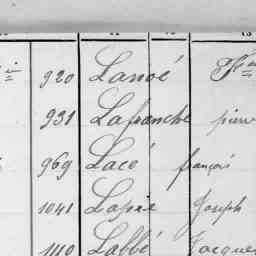 920 Lanoé
931 Lafranche pierre
969 Lacé françois
1041 Lapie Joseph
1110 Labbé Jacques